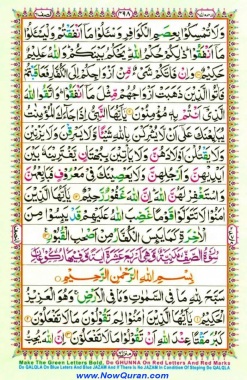 وَلَا تُمْسِكُوْا بِعِصَمِ الْكَوَافِرِ وَسْـَٔلُوْا مَآ اَنْفَقْتُمْ وَلْيَسْـَٔلُوْا
مَآ اَنْفَقُوْا ذٰلِكُمْ حُكْمُ اللّٰهِ يَحْكُمُ بَيْنَكُمْ وَاللّٰهُ عَلِيْمٌ
حَكِيْمٌ وَاِنْ فَاتَكُمْ شَيْءٌ مِّنْ اَزْوَاجِكُمْ اِلَى الْكُفَّارِ فَعَاقَبْتُمْ
فَاٰتُوا الَّذِيْنَ ذَهَبَتْ اَزْوَاجُهُمْ مِّثْلَ مَآ اَنْفَقُوْا وَاتَّقُوا اللّٰهَ
الَّذِيْٓ اَنْتُمْ بِهٖ مُؤْمِنُوْنَ يٰٓاَيُّهَا النَّبِيُّ اِذَا جَآءَكَ الْمُؤْمِنٰتُ
يُبَايِعْنَكَ عَلٰٓى اَنْ لَّا يُشْرِكْنَ بِاللّٰهِ شَيْـًٔا وَّلَا يَسْرِقْنَ وَلَا يَزْنِيْنَ
وَلَا يَقْتُلْنَ اَوْلَادَهُنَّ وَلَا يَاْتِيْنَ بِبُهْتَانٍ يَّفْتَرِيْنَهٗ بَيْنَ
اَيْدِيْهِنَّ وَاَرْجُلِهِنَّ وَلَا يَعْصِيْنَكَ فِيْ مَعْرُوْفٍ فَبَايِعْهُنَّ
وَاسْتَغْفِرْ لَهُنَّ اللّٰهَ اِنَّ اللّٰهَ غَفُوْرٌ رَّحِيْمٌ يٰٓاَيُّهَا الَّذِيْنَ
اٰمَنُوْا لَا تَتَوَلَّوْا قَوْمًا غَضِبَ اللّٰهُ عَلَيْهِمْ قَدْ يَئِسُوْا مِنَ
الْاٰخِرَةِ كَمَا يَئِسَ الْكُفَّارُ مِنْ اَصْحٰبِ الْقُبُوْرِ
بِسْمِ اللّٰهِ الرَّحْمٰنِ الرَّحِيْمِ
سَبَّحَ لِلّٰهِ مَا فِي السَّمٰوٰتِ وَمَا فِي الْاَرْضِ وَهُوَ الْعَزِيْزُ
الْحَكِيْمُ يٰٓاَيُّهَا الَّذِيْنَ اٰمَنُوْا لِمَ تَقُوْلُوْنَ مَا لَا تَفْعَلُوْنَ
كَبُرَ مَقْتًا عِنْدَ اللّٰهِ اَنْ تَقُوْلُوْا مَا لَا تَفْعَلُوْنَ اِنَّ اللّٰهَ يُحِبُّ
Make The Green Letters Bold, Do GHUNNA On Red Letters And Red Marks
Do QALQLA On Blue Letters And Blue JAZAM And If There is No JAZAM in Condition Of Stoping Do QALQLA
www.NowQuran.com